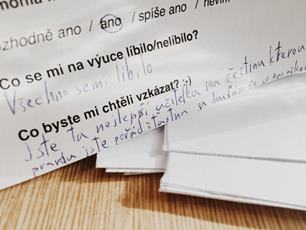 ozhodně ano / ano / spíše ano / nevím
Co se mi na výuce líbilo/nelíbilo?
Všechno se mi líbilo
Co byste mi chtěli vzkázat? ;)
Jste ta nejlepší učitelka na češtinu kterou
pravdu jste pořád šťastna su doufam se